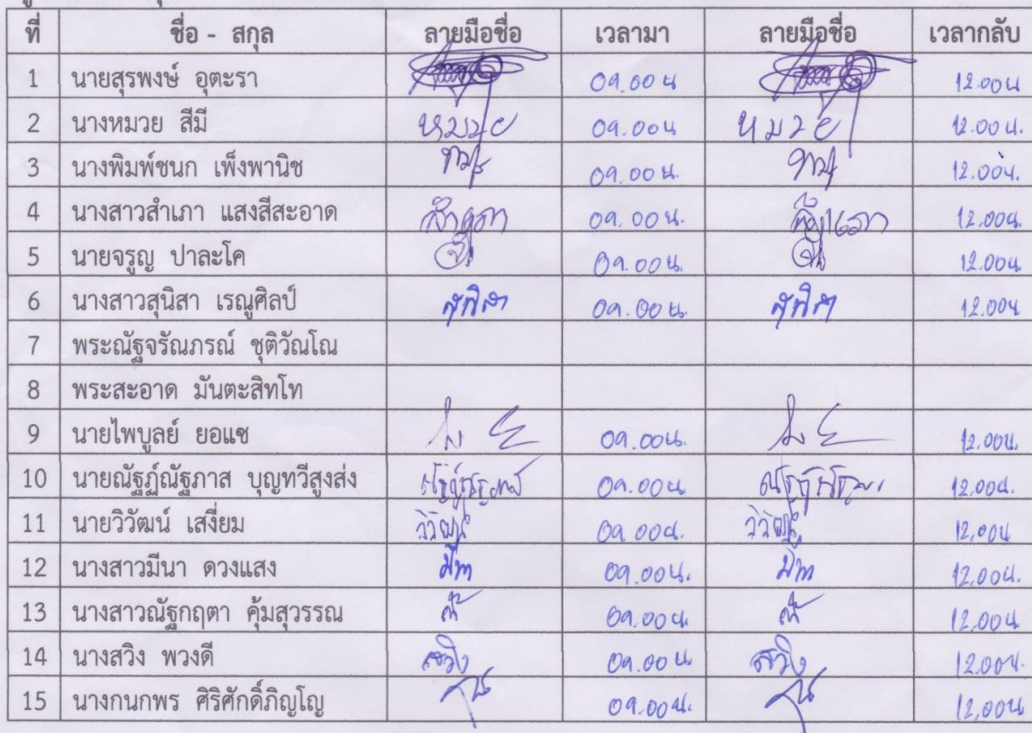 ที่ ชื่อ - สกุล ลายมือชื่อ เวลามา ลายมือชื่อ เวลากลับ
1 นายสุรพงษ์ อุตะรา 09.00 น 12.00 น
2 นางหมวย สีมี หมวย 09.00 น หมวย 12.00 น.
3 นางพิมพ์ชนก เพ็งพานิช 09.00 น. 12.00 น.
4 นางสาวสำเภา แสงสีสะอาด สำเภา 09.00 น. สำเภา 12.00 น.
5 นายจรูญ ปาละโค 09.00 น. 12.00 น
6 นางสาวสุนิสา เรณูศิลป์ สุนิสา 09.00 น. สุนิสา 12.00 น
7 พระณัฐจรัณภรณ์ ชุติวัณโณ
8 พระสะอาด มันตะสิทโท
9 นายไพบูลย์ ยอแซ 09.00 น. 12.00 น.
10 นายณัฐฏ์ณัฐภาส บุญทวีสูงส่ง 09.00 น 12.00 น.
11 นายวิวัฒน์ เสงี่ยม วิวัฒน์ 09.00 น. วิวัฒน์ 12.00 น
12 นางสาวมีนา ดวงแสง มีนา 09.00 น. มีนา 12.00 น.
13 นางสาวณัฐกฤตา คุ้มสุวรรณ 09.00 น. 12.00 น
14 นางสวิง พวงดี สวิง 09.00 น สวิง 12.00 น.
15 นางกนกพร ศิริศักดิ์ภิญโญ 09.00 น. 12.00 น